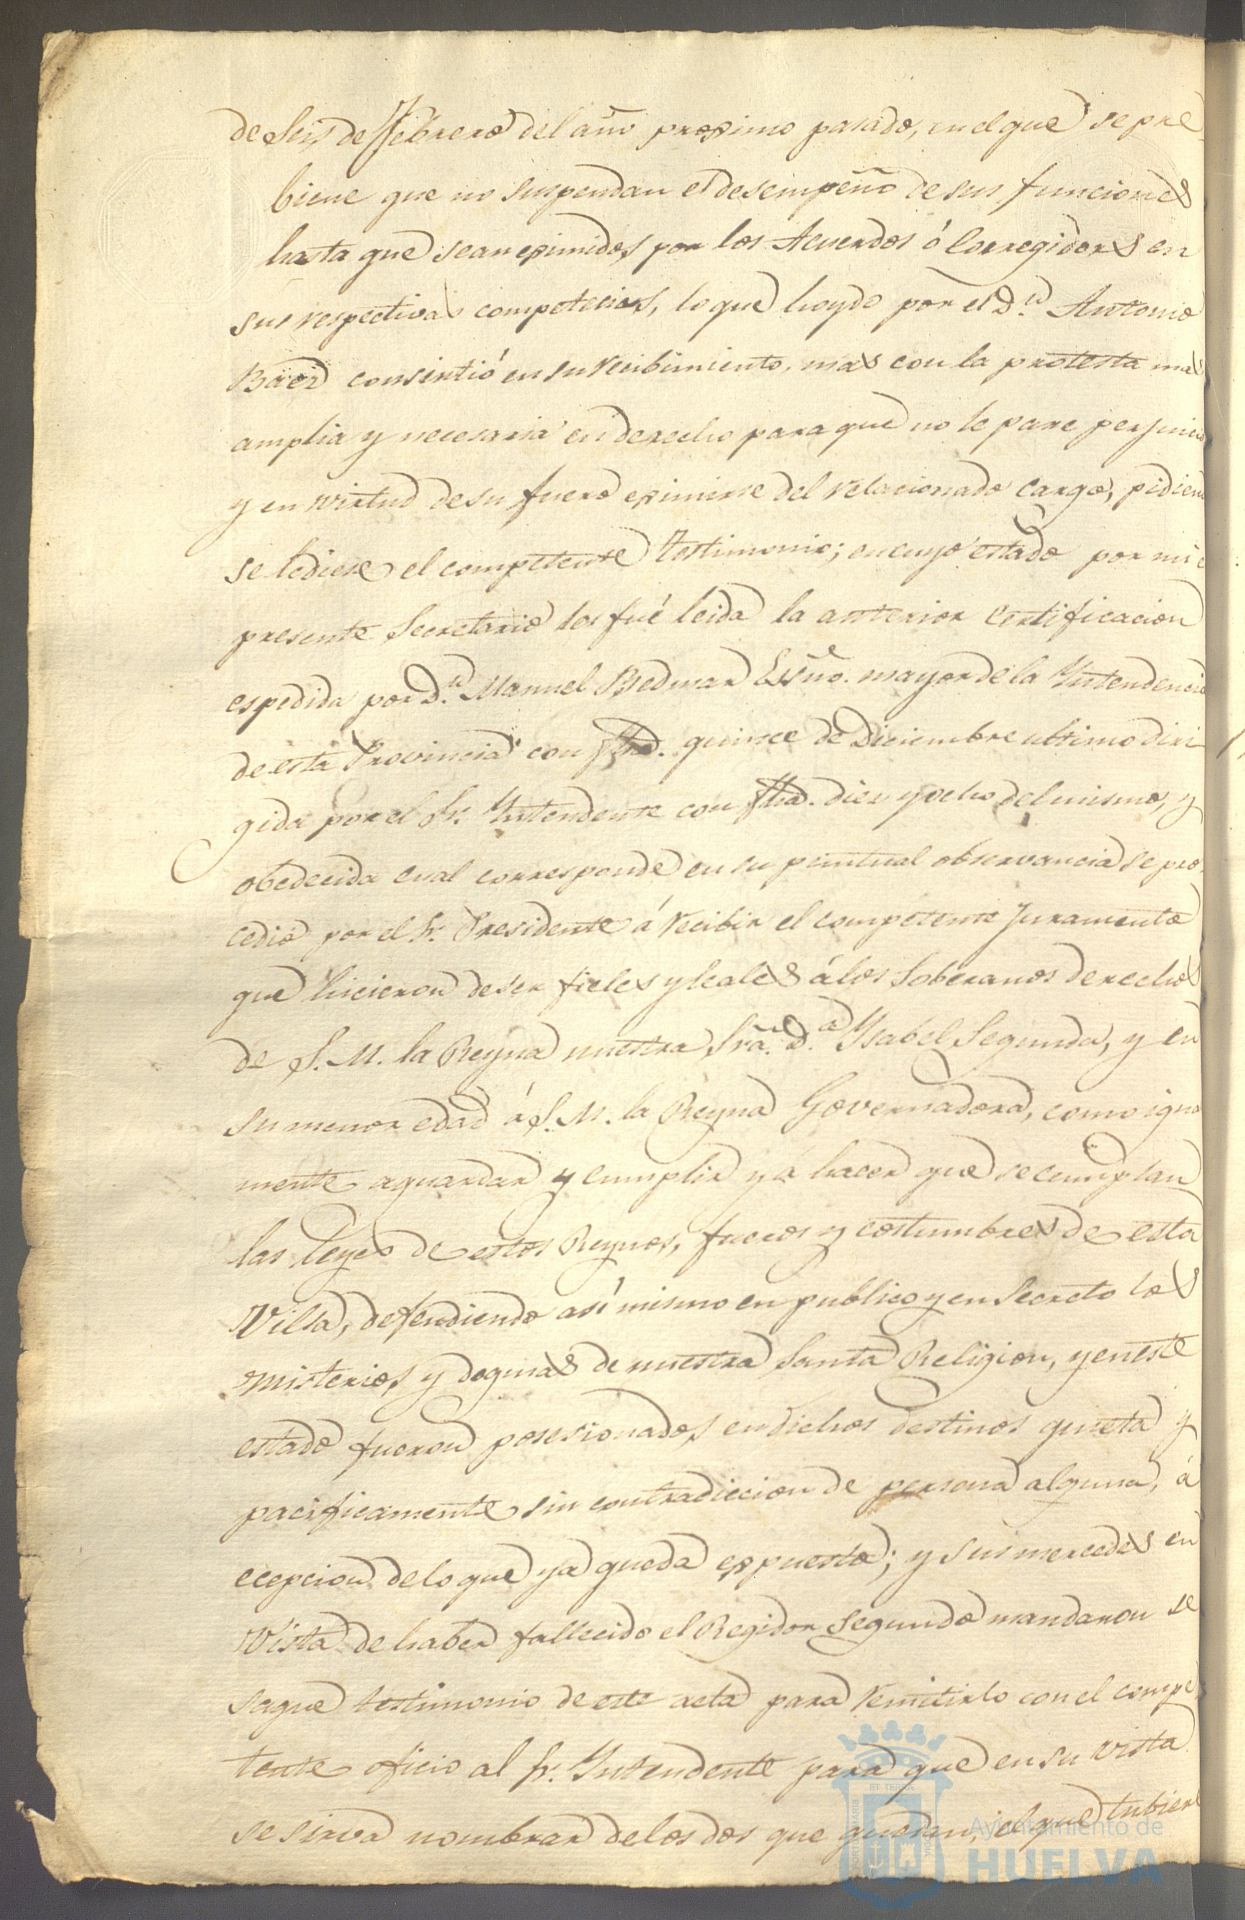 de Seis de Febrero del año proximo pasado, en el que se pre
biene que no suspendan el desempeño de sus funciones
hasta que sean eximidos por los Acuerdos ó Corregidores en
sus respectivas competecias, lo que hoydo por el D.n Antonio
Baez consintió en su recibimiento, mas con la protesta mas
amplia y necesaria en derecho para que no le pare perjuicio
y en virtud de su fuero eximirse del relacionado cargo, pidiend
se le diese el competente testimonio; en cuyo estado por mi e
presente Secretario les fué leida la anterior Certificacion
espedida por D.n Manuel Bedmar Essño. mayor de la Yntendencia
de esta Provincia con fha. quince de Diciembre ultimo diri
gida por el Sr. Yntendente con fha. diez y ocho del mismo, y
obedecida cual corresponde en su puntual observancia se pro
cedio por el Sr. Presidente á recibir el competente Juramento
que hicieron de ser fieles y leales á los Soberanos derechos
de S. M. la Reyna nuestra Sra. D.a Ysabel Segunda, y en
su menor edad á S. M. la Reyna Governadora, como igua
mente aguardar y cumplir y á hacer que se cumplan
las leyes de estos Reynos, fueros y costumbres de esta
Villa, defendiendo asi mismo en publico y en Secreto los
misterios y dogmas de nuestra Santa Religion, y en este
estado fueron posesionados en dichos destinos quieta y
pacificamente sin contradiccion de persona alguna, á
ecepcion de lo que ya queda expuesto; y sus mercedes en
Vista de haber fallecido el Regidor Segundo mandaron se
saque testimonio de este acta para remitirlo con el compe
tente oficio al Sr. Yntendente para que en su vista
se sirva nombrar de los dos que quedan, el que tubiere
Ayuntamiento de
HUELVA